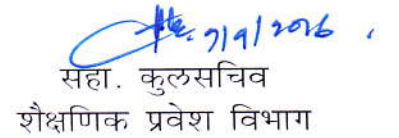 7/9/2016
सहा. कुलसचिव
शैक्षणिक प्रवेश विभाग